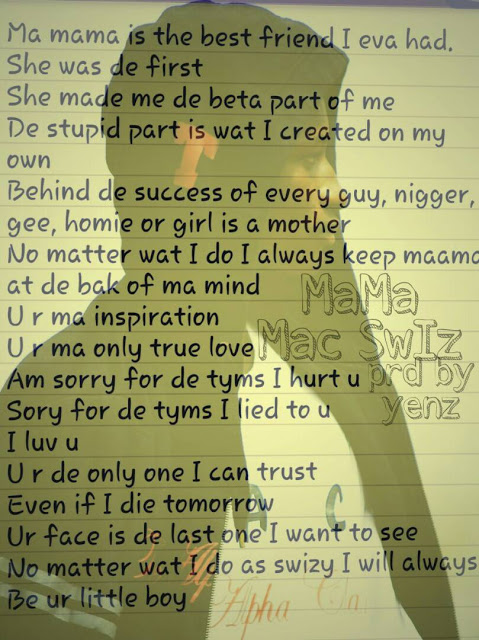 Ma mama is the best friend I eva had.
She was de first
She made me de beta part of me
De stupid part is wat I created on my
own
Behind de success of every guy, nigger,
gee, homie or girl is a mother
No matter wat I do I always keep maama
at de bak of ma mind
U r ma inspiration
U r ma only true love
Am sorry for de tyms I hurt u
Sory for de tyms I lied to u
I luv u
U r de only one I can trust
Even if I die tomorrow
Ur face is de last one I want to see
No matter wat I do as swizy I will always
Be ur little boy
MaMa
Mac SwIz
prd by
yenz